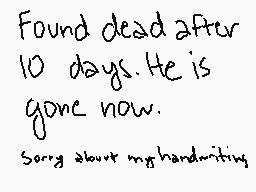 Found dead after
10 days. He is
gone now.
Sorry about my handwriting